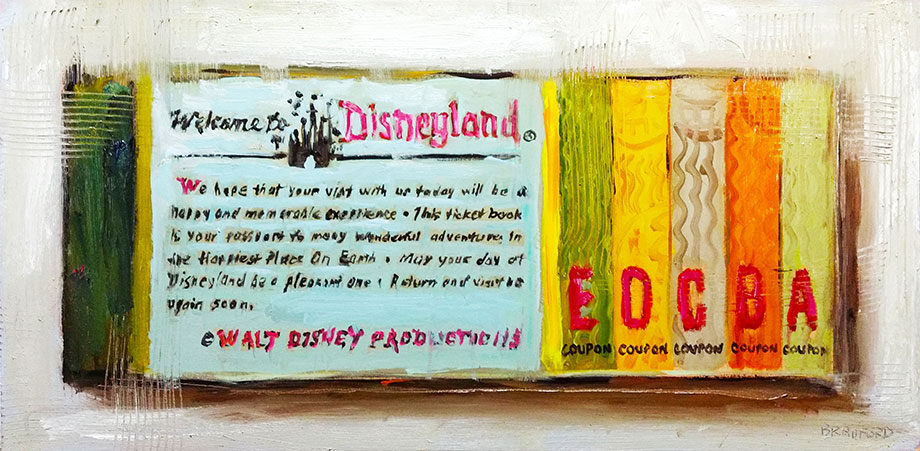 Welcome to Disneyland ®
We hope that your visit with us today will be a
happy and memorable experience • This ticket book
is your passport to many wonderful adventures in
the Happiest Place On Earth • May your day at
Disneyland be a pleasant one • Return and visit us
again soon.
© WALT DISNEY PRODUCTIONS
E D C B A
COUPON COUPON COUPON COUPON COUPON
BRADFORD